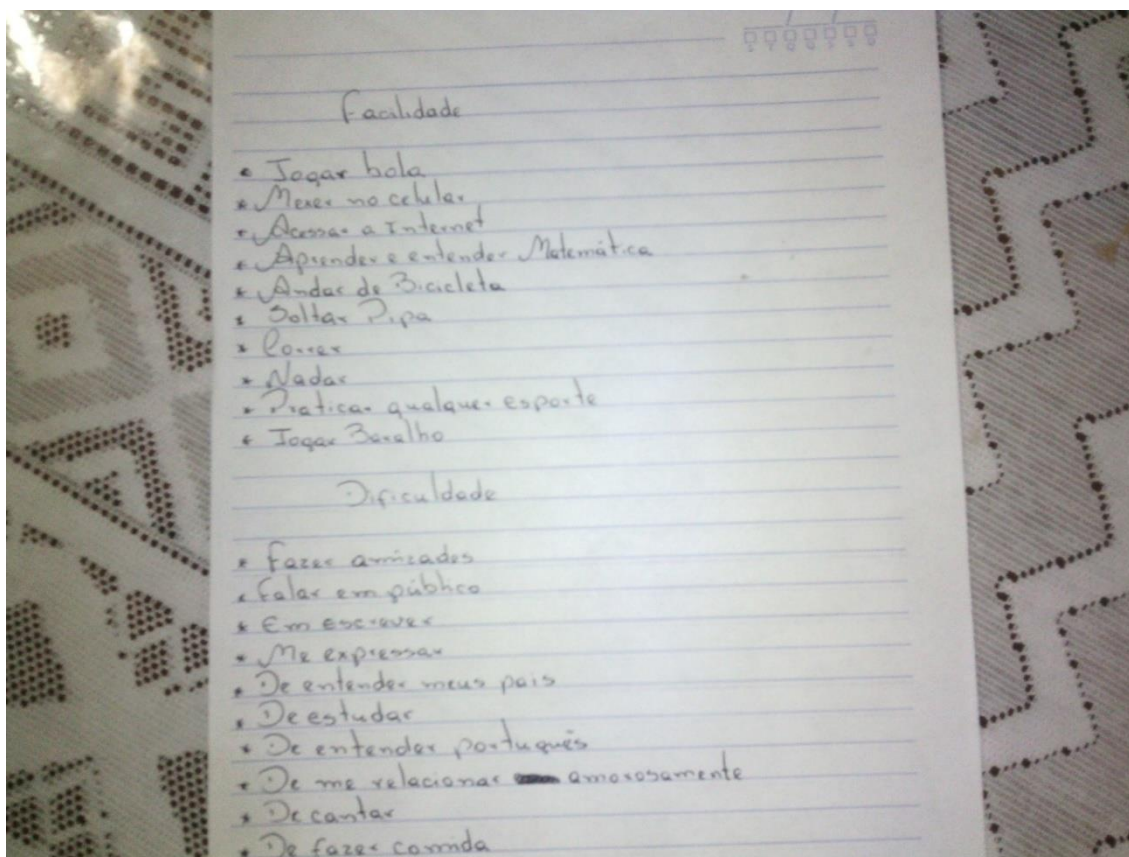 Facilidade
* Jogar bola
* Mexer no celular
* Acessar a Internet
* Aprender e entender Matemática
* Andar de Bicicleta
* Soltar Pipa
* Correr
* Nadar
* Praticar qualquer esporte
* Jogar Baralho
Dificuldade
* Fazer amizades
* Falar em público
* Em escrever
* Me expressar
* De entender meus pais
* De estudar
* De entender português
* De me relacionar amorosamente
* De cantar
* De fazer comida